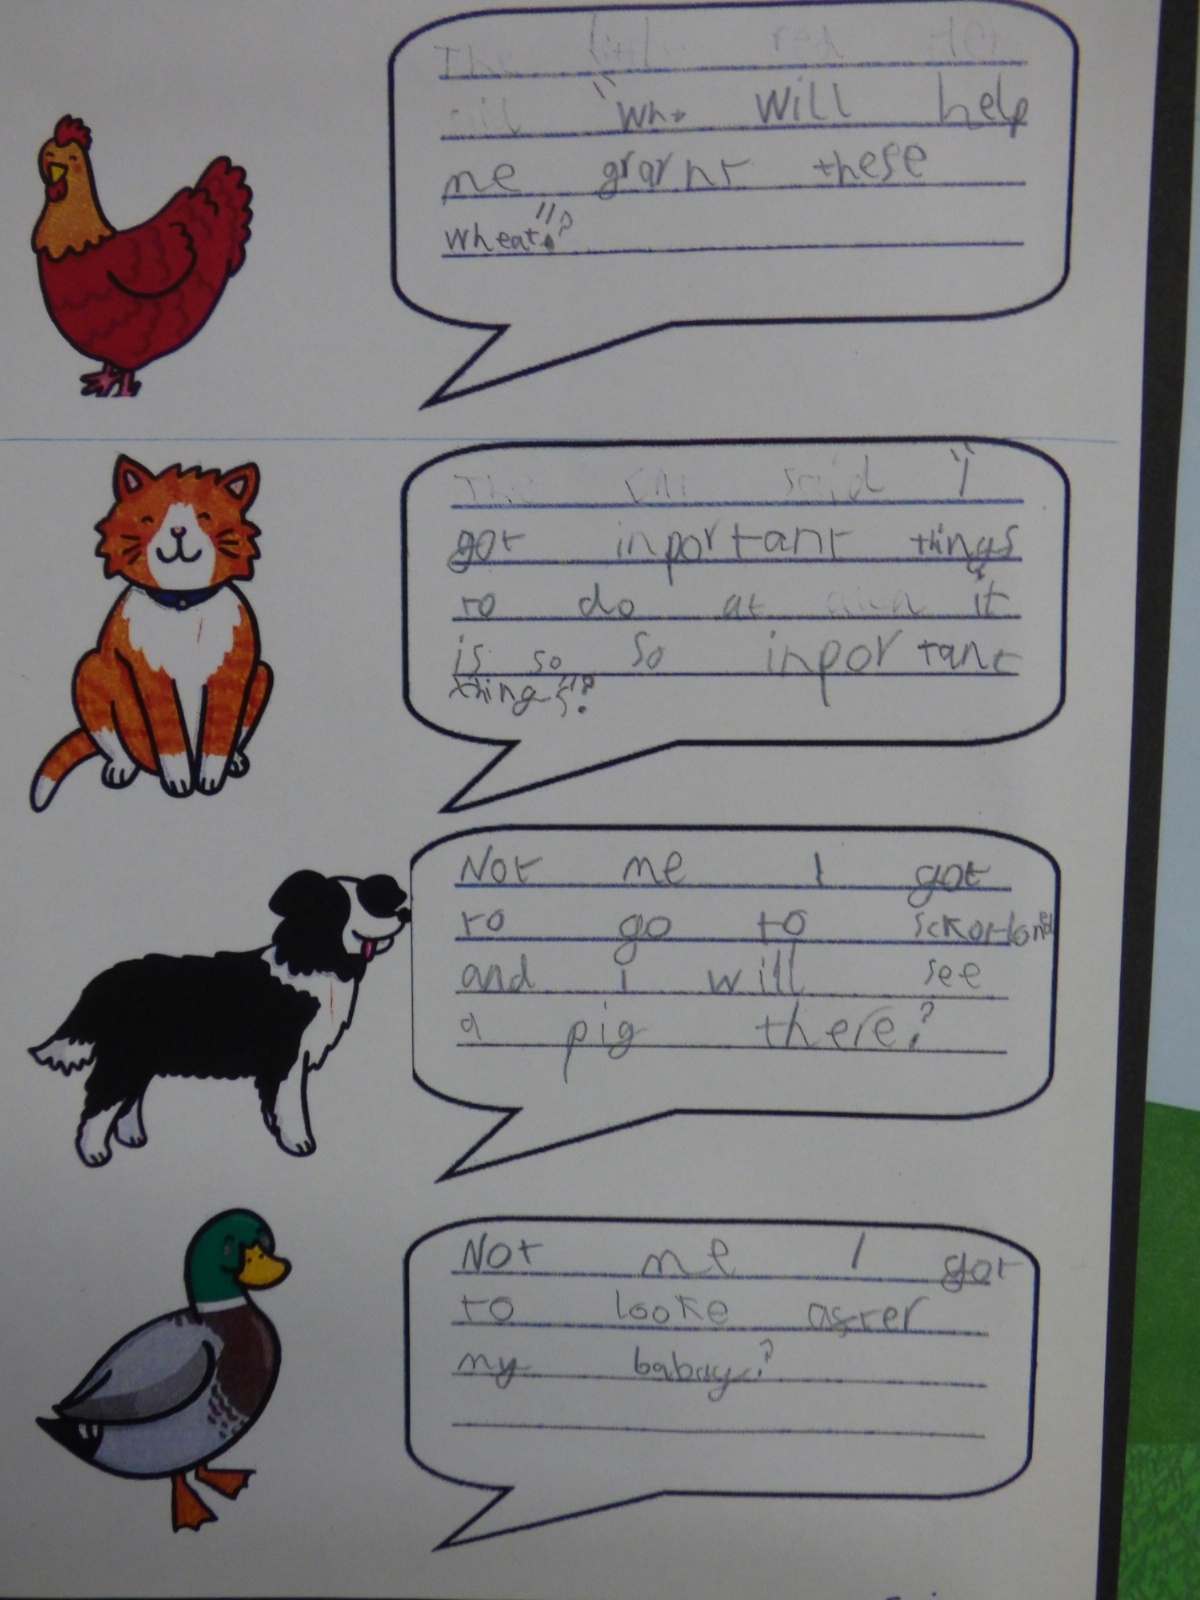 The littl red Hen
"who will help
me grarnt these
wheat"?
The cat said "I
got inportant things
to do at it
is so so inportant
things"?
Not me I got
to go to sckortland
and i will see
a pig there?
Not me I got
to looke aster
my babay?